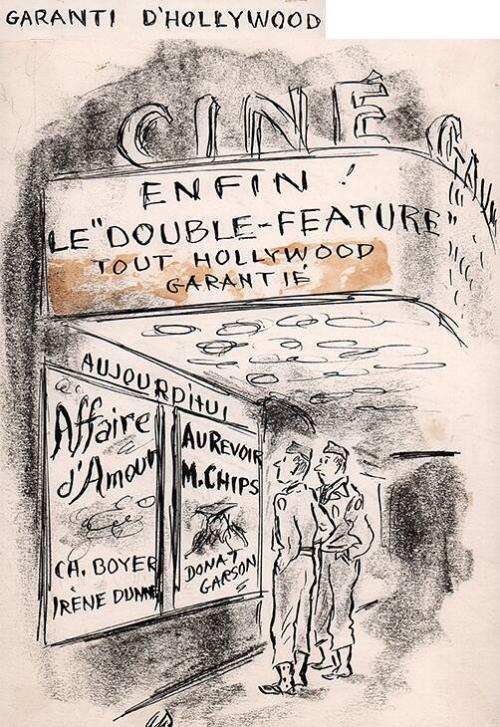 GARANTI D'HOLLYWOOD
CINÉ
ENFIN!
LE "DOUBLE-FEATURE"
TOUT HOLLYWOOD
GARANTIE
AUJOURD'HUI
Affaire
d'Amour
CH. BOYER
IRÈNE DUNNE
AU REVOIR
M. CHIPS
DONAT
GARSON